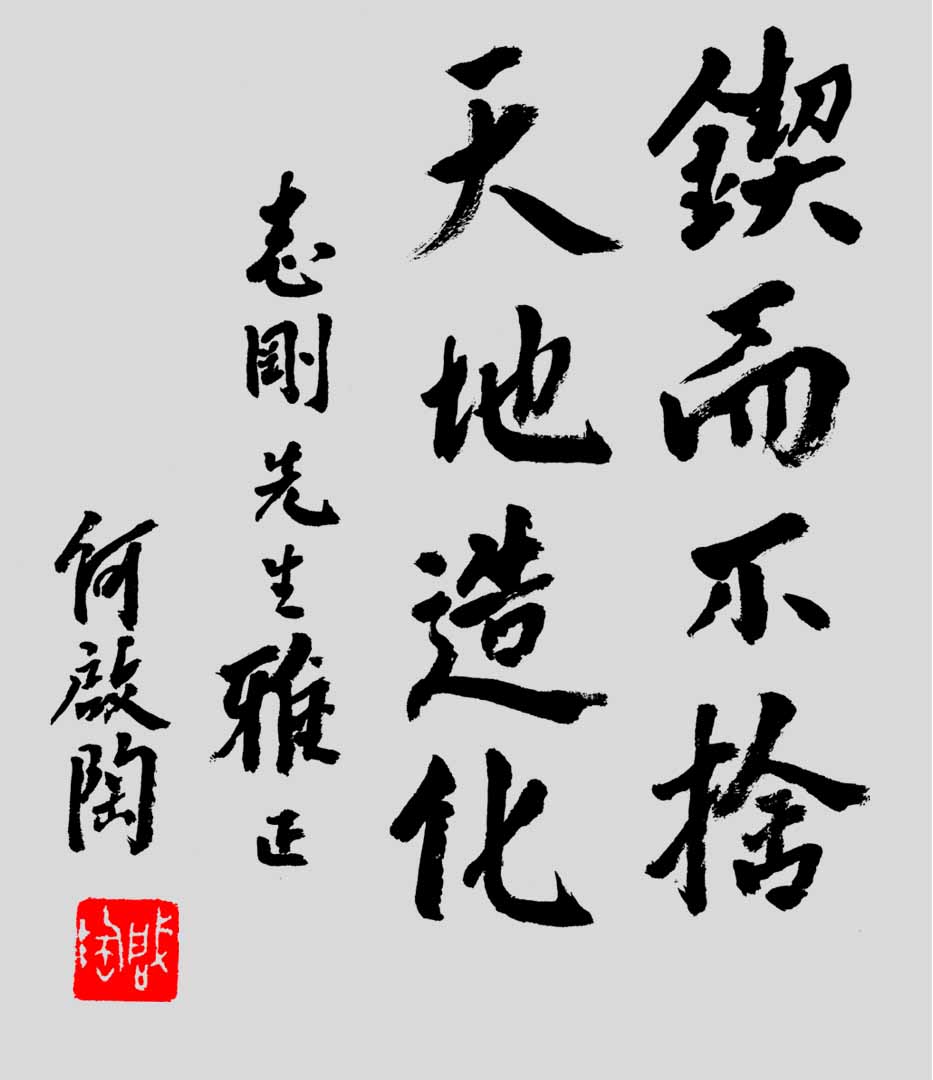 鍥而不捨
天地造化
志剛先生雅正
何啟陶
啟陶